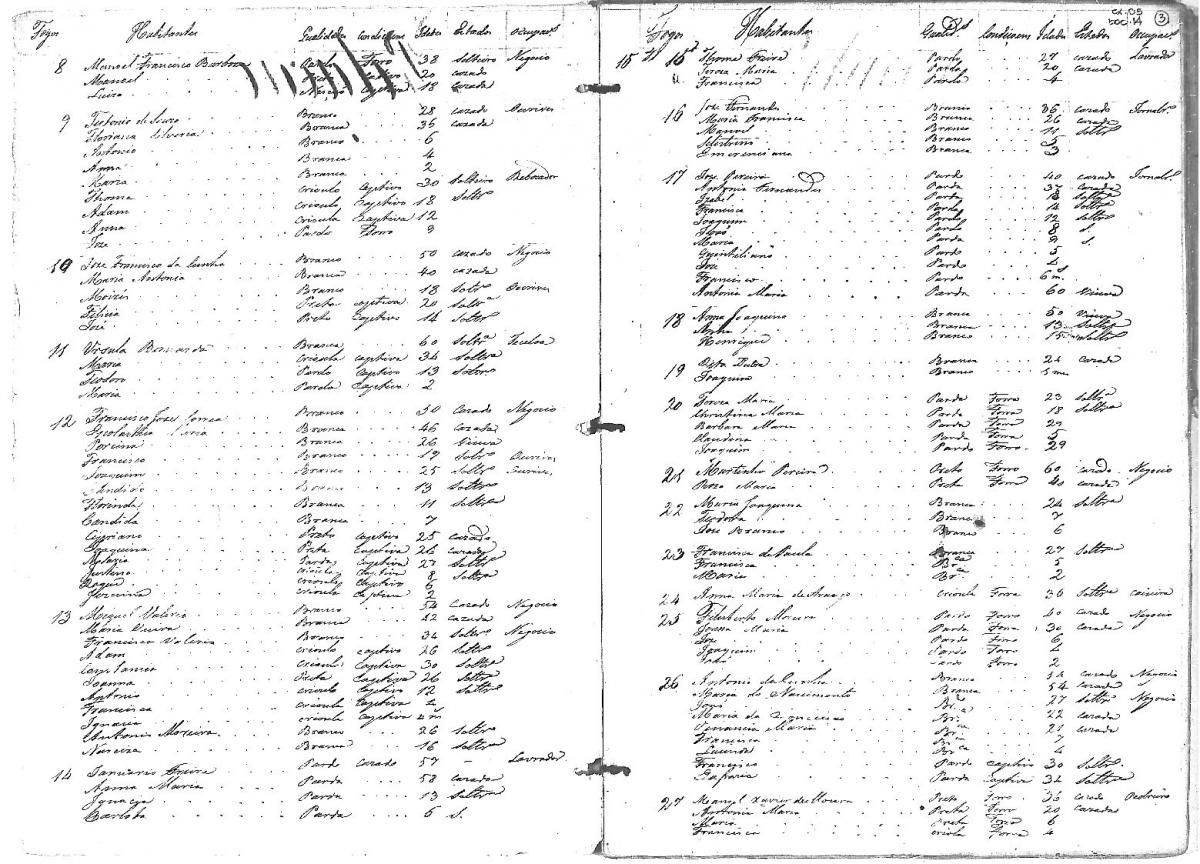 Fogos Habitantes Qualidades Condiçoens Idades Estados Ocupaçs
8 Manoel Francisco Barboza Pardo Forro 38 Solteiro Negocio
Manoel 20 cazado
Luiza captiva 18 cazada
9 Teotonio de Souza Branco 28 cazado Ourives
Floriana Silveria Branca 36 cazada
Antonio Branco 6
Anna Branca 4
Maria Branca 2
Thoma crioulo captivo 30 Solteiro Rebocador
Adam crioulo Captivo 18 Soltro
Anna crioula Captiva 12
Joze Pardo Forro 9
10 Joze Francisco da Cunha Branco 50 cazado Negocio
Maria Antonia Branca 40 cazada
Moizes Branco 18 Soltro Ourives
Felicia Preta captiva 20 Soltra
José Preto Captivo 14 Soltro
11 Ursula Bernarda Branca 60 Soltra
Maria crioula captiva 34 Soltra
Teodoro Pardo Captivo 13 Soltro
Maria Parda Captiva 2
12 Francisco Joze Correa Branco 50 Cazado Negocio
Branca 46 Cazada
Porcina Branca 26
Francisco Branco 19 Soltro Ourives
Joaquim Branco 25 Soltro Ourives
Candido Branco 13 Soltro
Florinda Branca 11 Soltra
Candida Branca 7
Cypriano Preto Captivo 25 cazado
Joaquina Preta Captiva 26 cazada
Captiva 27 Soltra
Justino crioulo Captivo 8 Soltro
Roque crioulo Captivo 6
crioula Captiva 2
13 Miguel Valerio Branco 54 Cazado Negocio
Maria Vieira Branca 42 cazada
Francisco Valerio Branco 34 Soltro Negocio
Adam crioulo captivo 26 Soltro
Constancia crioula Captiva 30 Soltra
Joanna Preta Captiva 26 Soltra
Antonio crioulo Captivo 12 Soltro
Francisca crioula Captiva 2
Ignacio crioulo Captivo 2 m
Antonio Moreira Branco 26 Soltro
Narciza Branca 16 Soltra
14 Januario Freire Pardo cazado 57 - Lavrador
Anna Maria Parda 58 cazada
Ignacia Parda 13 Soltra
Carlota Parda 6 S.
cx.05
Doc.14
3
Fogos Habitantes Qualids Condiçoens Idades Estados Ocupaçs
15 Thome Freire Pardo 27 cazado Lavrador
Thereza Maria Parda 20 cazada
Francisca Parda 4
16 Joze Fernandes Branco 36 cazado Jornalro
Maria Francisca Branca 26 cazada
Manoel Branco 11 Soltro
Silvetrino Branco 5
Emerenciana Branca 3
17 Joze Pereira Pardo 40 cazado Jornalro
Antonia Fernandes Parda 37 Cazada
Izabel Parda 18 Soltra
Francisca Parda 14 Soltra
Joaquim Pardo 12 Soltro
José Pardo 8 S.
Maria Parda 9 S.
Quintiliano Pardo 5
Joze Pardo
Francisco Pardo 6 ms
Antonia Maria Parda 60 Viuva
18 Anna Joaquina Branca 50 Viuva
Anna Branca 13 Soltra
Henrique Branco 15 Soltro
19 Branca 24 cazada
Joaquim Branco 5 me
20 Tereza Maria Parda Forra 23 Soltra
Christina Maria Parda Forra 18 Soltra
Barbara Maria Parda Forra 29
Claudina Parda Forra 5
Joaquim Pardo Forro 29
21 Martinho Pereira Preto Forro 60 cazado Negocio
Roza Maria Preta Forra 40 cazada
22 Maria Joaquina Branca 24 Soltra
Teodora Branca 7
Joze Branco Branco 6
23 Francisca de Paula Branca 27 Soltra
Francisca Bca 5
Maria Bca 2
24 Anna Maria de Araujo Crioula Forra 36 Soltra
25 Felisberto Moreira Pardo Forro 40 cazado Negocio
Joanna Maria Parda Forra 30 cazada
Joze Pardo Forro 6
Joaquim Pardo Forro 4
João Pardo Forro 2
26 Antonio da Cunha Branco cazado Negocio
Maria do Nascimento Branca 54 cazada
José Bco 27 Soltro Negocio
Maria da Bca 22 cazada
Venancia Maria Bca 21 cazada
Francisca Bca 7
Lucinda Bca 4
Francisco Pardo Captivo 30 Soltro
Eufazia Parda Captiva 32 Soltra
27 Manoel Xavier de Moura Preto Forro 36 cazado Pedreiro
Antonia Maria Preta Forra 20 Cazada
Maria Preta Forra 6
Francisca criola Forra 4